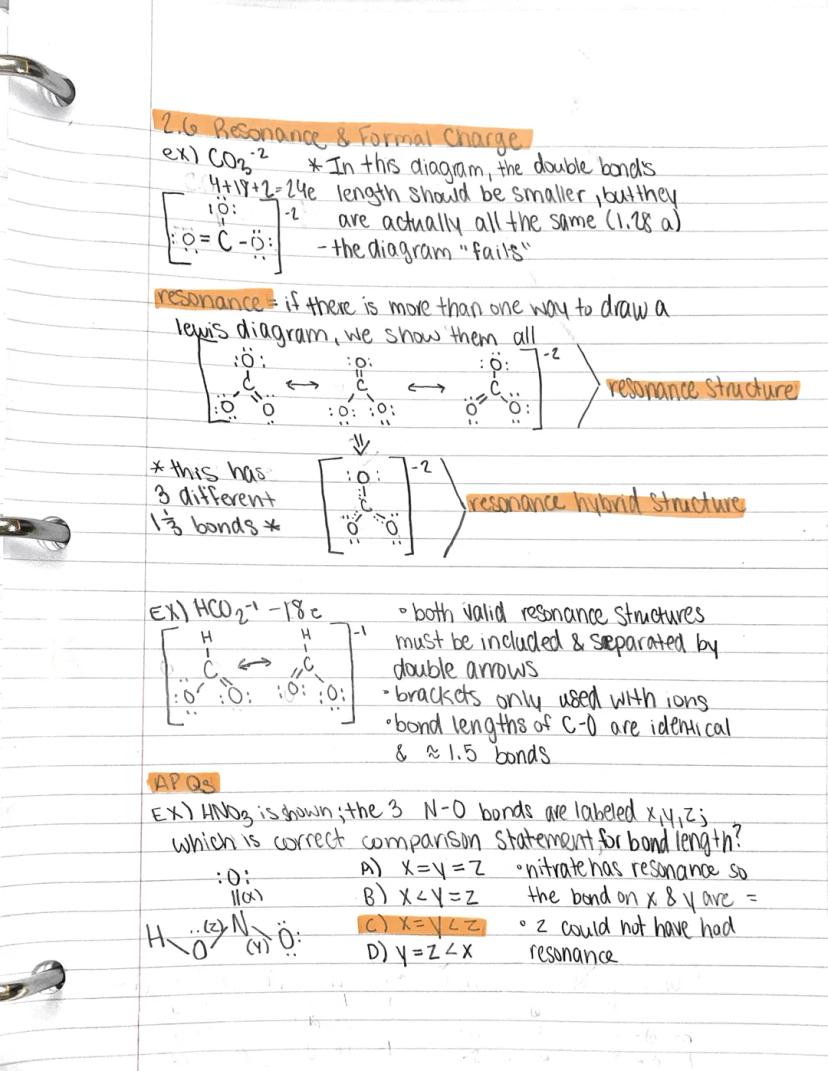 2.6 Resonance & Formal Charge
ex) CO₃⁻² * In this diagram, the double bonds
4+18+2=24e length should be smaller, but they
:Ö: -2 are actually all the same (1.28 a)
:Ö=C-Ö: - the diagram "fails"
resonance = if there is more than one way to draw a
lewis diagram, we show them all
:Ö: :O: :Ö: -2
C ↔ C ↔ C
:Ö Ö :Ö: :Ö: Ö Ö: resonance structure
⇓
* this has :O: -2
3 different C resonance hybrid structure
1⅓ bonds * Ö Ö
EX) HCO₂⁻¹ -18e • both valid resonance structures
H H -1 must be included & separated by
C ↔ C double arrows
:Ö :O: :O: :Ö: • brackets only used with ions
• bond lengths of C-O are identical
& ≈ 1.5 bonds
AP Qs
EX) HNO₃ is shown; the 3 N-O bonds are labeled x,y,z;
which is correct comparison statement for bond length?
:O: A) X=Y=Z • nitrate has resonance so
||(x) B) X<Y=Z the bond on x & y are =
H Ö (z) N (y) Ö: C) X=Y<Z • z could not have had
D) Y=Z<X resonance